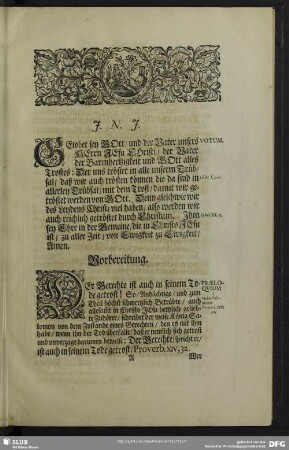 J. N. J.
GElobet sey GOtt und der Vater unsers
HErrn JEsu Christi / der Vater
der Barmhertzigkeit und GOtt alles
Trostes / Der uns tröstet in alle unserm Trüb-
sal / daß wir auch trösten können die da sind in
allerley Trübsal / mit dem Trost / damit wir ge-
tröstet werden von GOtt. Denn gleichwie wir
des Leydens Christi viel haben / also werden wir
auch reichlich getröstet durch Christum. Ihm
sey Ehre in der Gemeine / die in Christo JEsu
ist / zu aller Zeit / von Ewigkeit zu Ewigkeit /
Amen.
VOTUM.
Vorbereitung.
DEr Gerechte ist auch in seinem To-
de getrost! So / Andächtige / und zum
Theil höchst schmertzlich Betrübte / auch
allesamt in Christo JEsu hertzlich gelieb-
te Zuhörer / schreibet der weise König Sa-
lomon von dem Zustande eines Gerechten / den es mit ihm
habe / wenn ihn der Tod überfalle / daß er nemlich sich getrost
und unverzagt darinnen beweist: Der Gerechte / spricht er /
ist auch in seinem Tode getrost / Proverb. XIV, 32.
PRÆLO-
QVIUM
A
Wer
SLUB
DFG